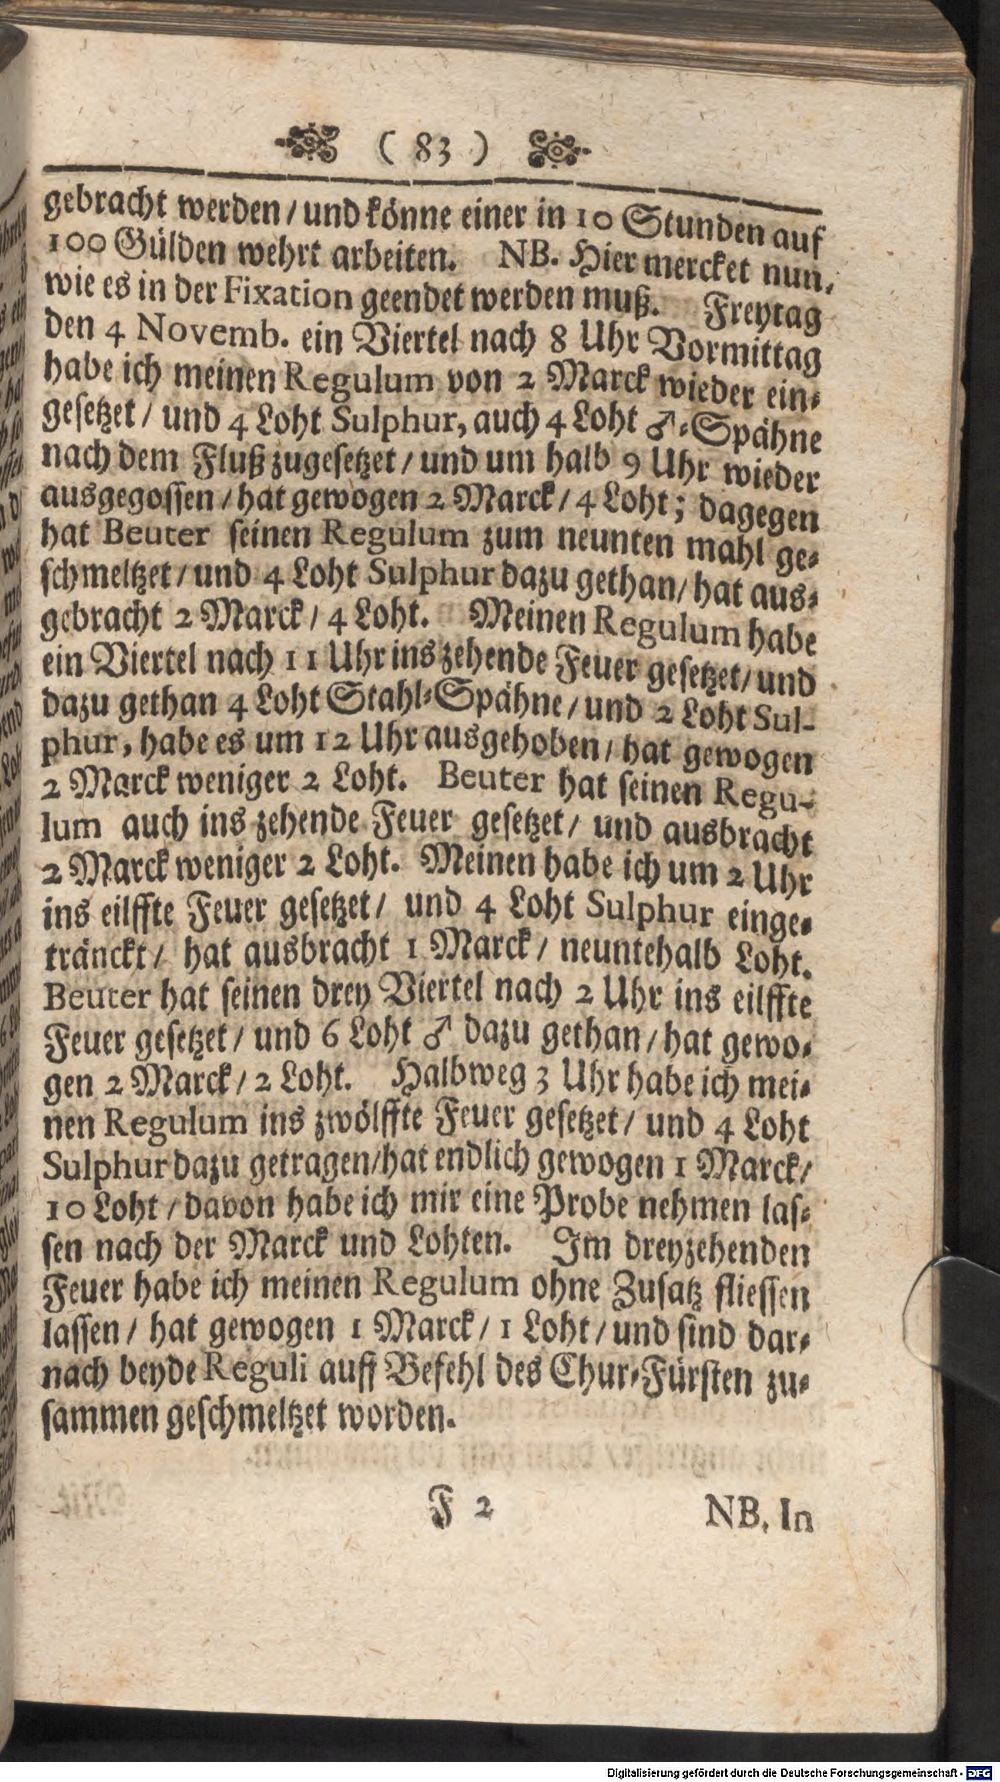 ( 83 )
gebracht werden / und könne einer in 10 Stunden auf
100 Gülden wehrt arbeiten. NB. Hier mercket nun,
wie es in der Fixation geendet werden muß. Freytag
den 4 Novemb. ein Viertel nach 8 Uhr Vormittag
habe ich meinen Regulum von 2 Marck wieder ein-
gesetzet / und 4 Loht Sulphur, auch 4 Loht ♂-Spähne
nach dem Fluß zugesetzet / und um halb 9 Uhr wieder
ausgegossen / hat gewogen 2 Marck / 4 Loht; dagegen
hat Beuter seinen Regulum zum neunten mahl ge-
schmeltzet / und 4 Loht Sulphur dazu gethan / hat aus-
gebracht 2 Marck / 4 Loht. Meinen Regulum habe
ein Viertel nach 11 Uhr ins zehende Feuer gesetzet / und
dazu gethan 4 Loht Stahl-Spähne / und 2 Loht Sul-
phur, habe es um 12 Uhr ausgehoben / hat gewogen
2 Marck weniger 2 Loht. Beuter hat seinen Regu-
lum auch ins zehende Feuer gesetzet / und ausbracht
2 Marck weniger 2 Loht. Meinen habe ich um 2 Uhr
ins eilffte Feuer gesetzet / und 4 Loht Sulphur einge-
tränckt / hat ausbracht 1 Marck / neuntehalb Loht.
Beuter hat seinen drey Viertel nach 2 Uhr ins eilffte
Feuer gesetzet / und 6 Loht ♂ dazu gethan / hat gewo-
gen 2 Marck / 2 Loht. Halbweg 3 Uhr habe ich mei-
nen Regulum ins zwölffte Feuer gesetzet / und 4 Loht
Sulphur dazu getragen / hat endlich gewogen 1 Marck /
10 Loht / davon habe ich mir eine Probe nehmen las-
sen nach der Marck und Lohten. Im dreyzehenden
Feuer habe ich meinen Regulum ohne Zusatz fliessen
lassen / hat gewogen 1 Marck / 1 Loht / und sind dar-
nach beyde Reguli auff Befehl des Chur-Fürsten zu-
sammen geschmeltzet worden.
F 2 NB. In
Digitalisierung gefördert durch die Deutsche Forschungsgemeinschaft - DFG